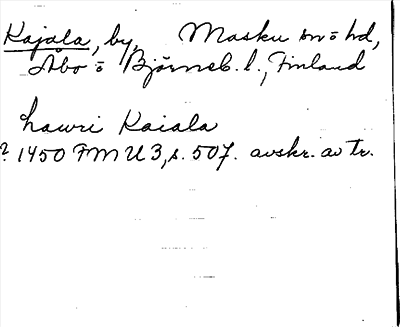 Kajala, by, Masku sn o hd,
Åbo o Björneb. l., Finland
Lauri Kaiala
? 1450 FMU 3, s. 507. avskr. av tr.